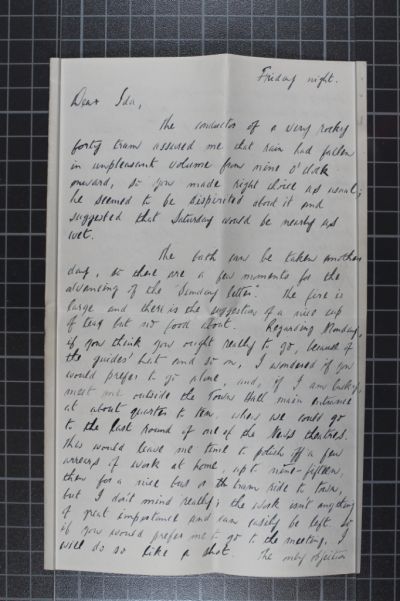 Friday night.
Dear Ida,
The conductor of a very rocky
forty tram assured me that rain had fallen
in unpleasant volume from nine o'clock
onward, so you made right choice as usual;
he seemed to be dispirited about it and
suggested that Saturday would be nearly as
wet.
The bath can be taken another
day, so there are a few moments for the
advancing of the "Sunday letter". The fire is
large and there is the suggestion of a nice cup
of tea but no food about. Regarding Monday,
if you think you ought really to go, because of
the guides' hut and so on, I wondered if you
would prefer to go alone, and, if I am lucky,
meet me outside the Town Hall main entrance
at about quarter to ten, when we could go
to the last round of one of the News theatres.
This would leave me time to polish off a few
arrears of work at home, upto nine-fifteen,
then for a nice bus or tram ride to town,
but I don't mind really; the work isn't anything
of great importance and can easily be left so
if you would prefer me to go to the meeting, I
will do so like a shot. The only objection